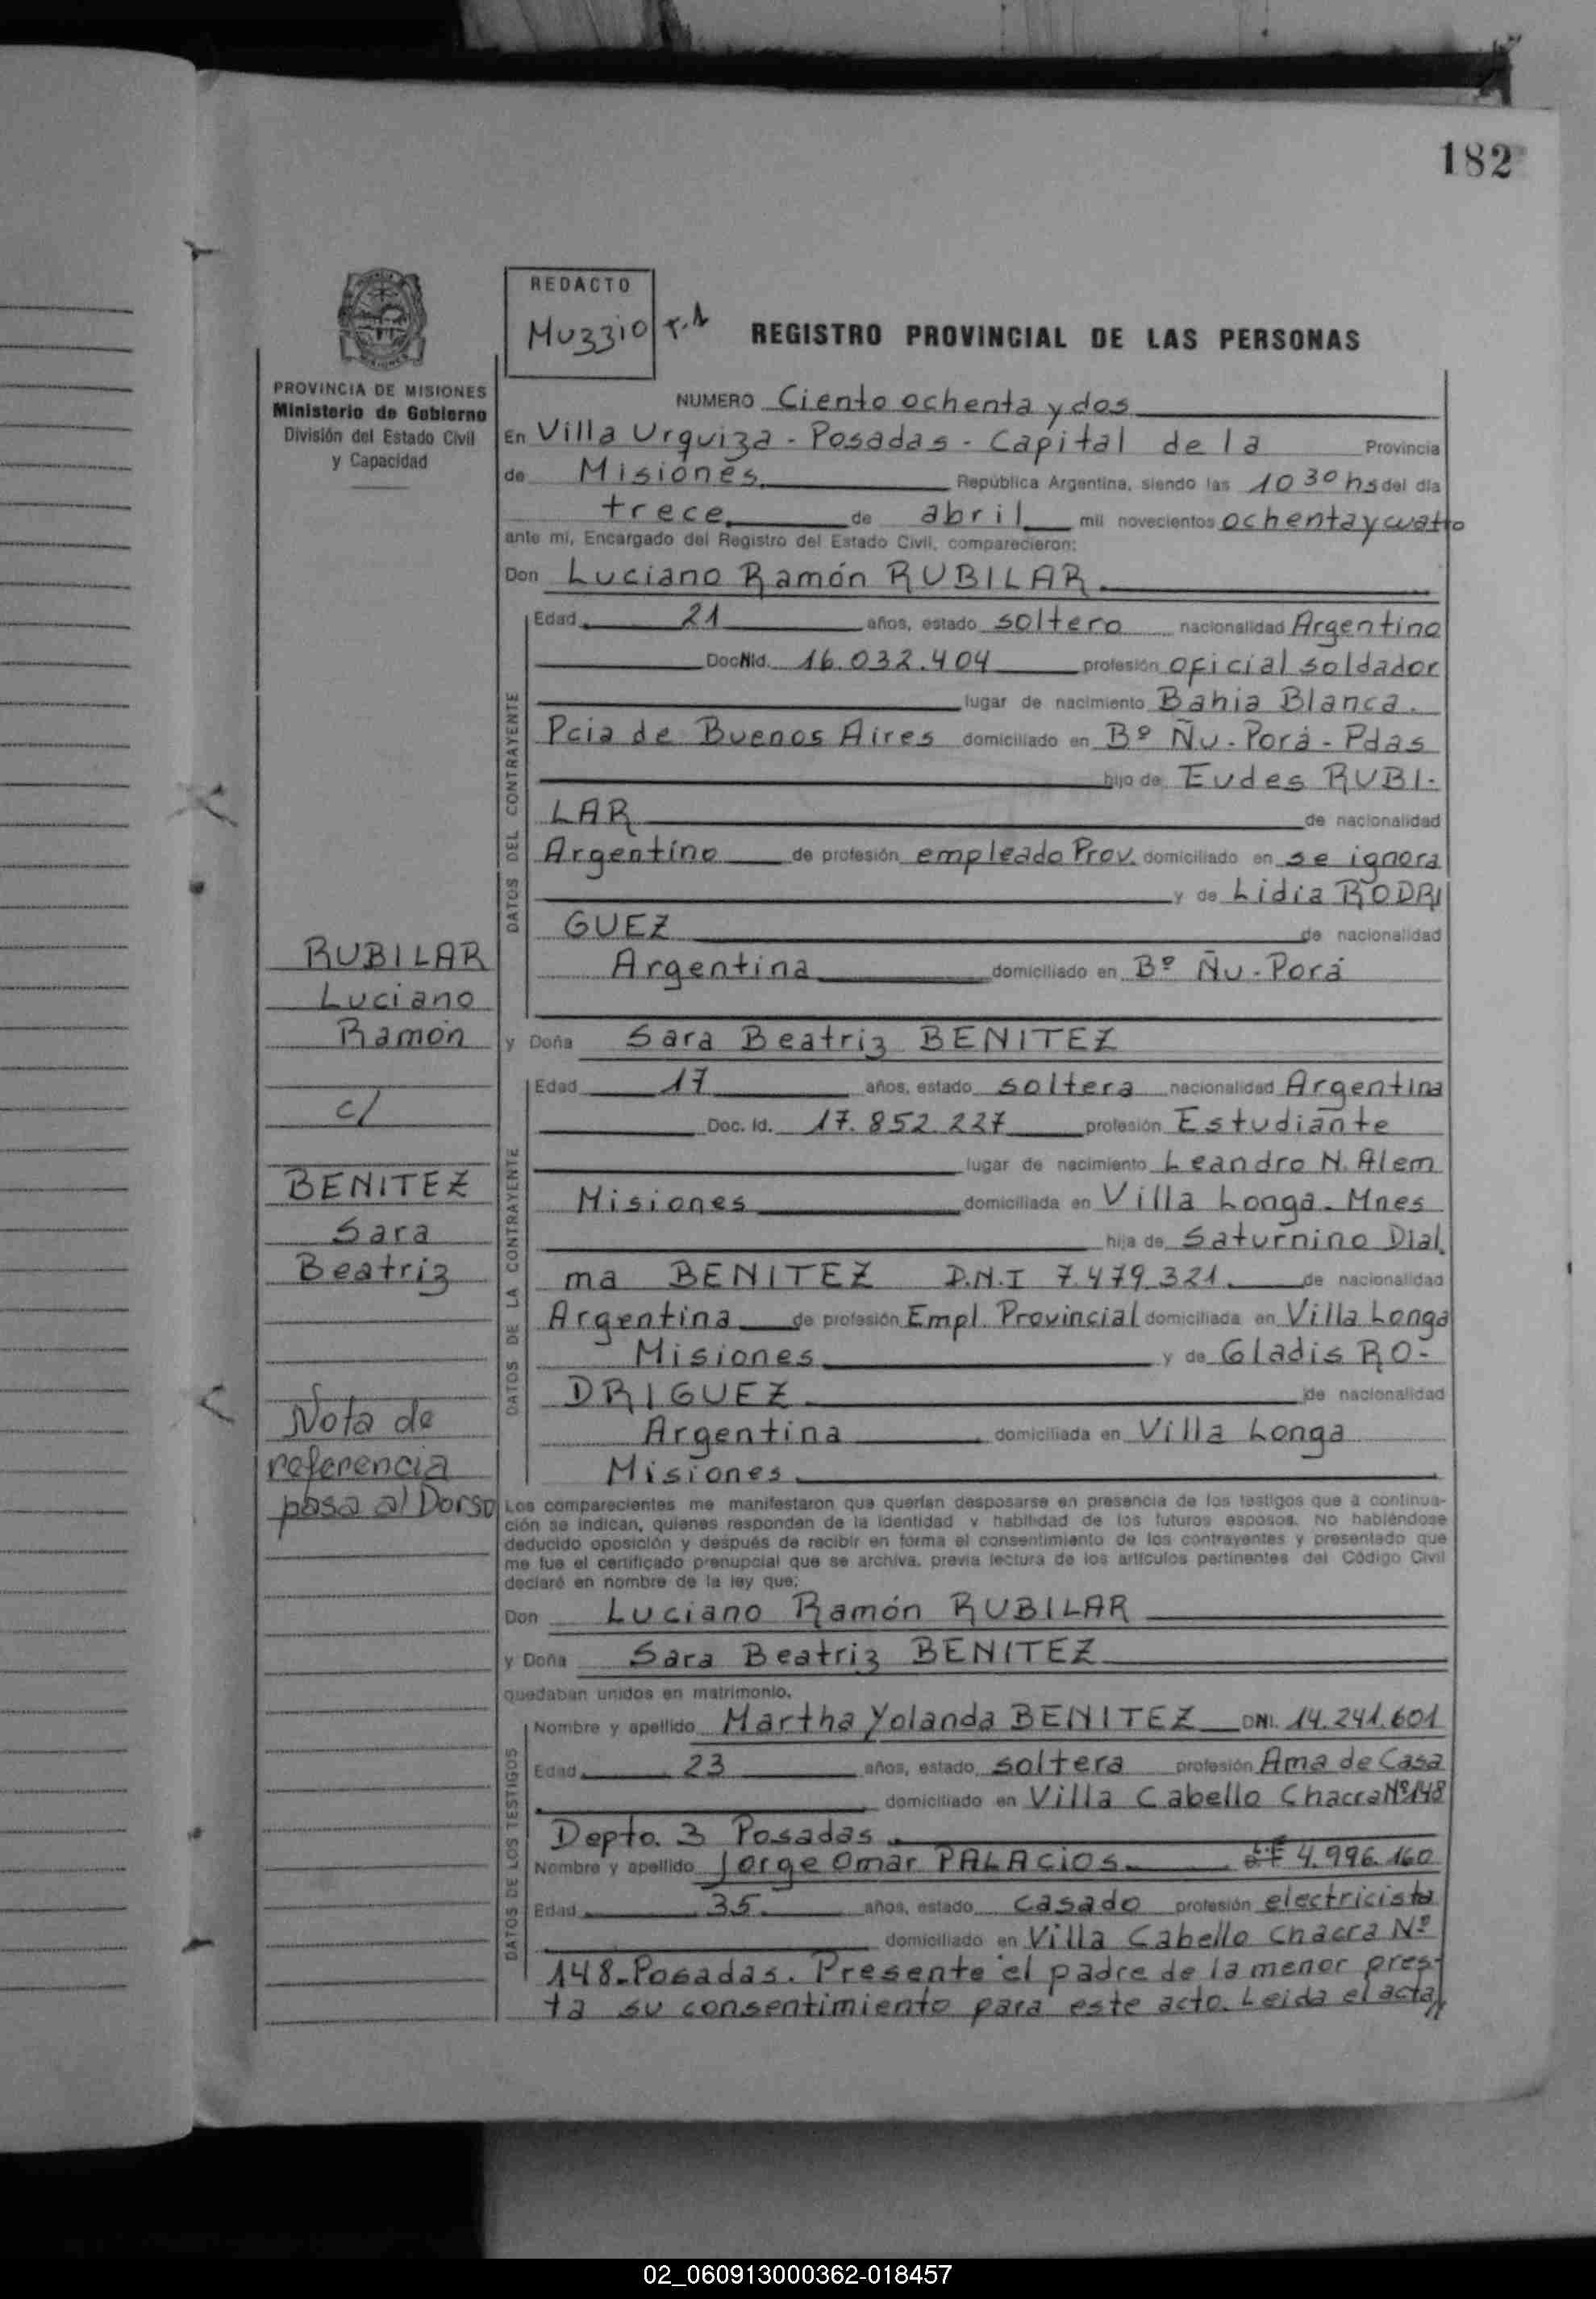 182
REDACTO
Muzzio T.A
REGISTRO PROVINCIAL DE LAS PERSONAS
PROVINCIA DE MISIONES
Ministerio de Gobierno
División del Estado Civil
y Capacidad
NUMERO Ciento ochenta y dos
En Villa Urquiza - Posadas - Capital de la Provincia
de Misiones República Argentina, siendo las 10 30 hs del día
trece de abril mil novecientos ochenta y cuatro
ante mí, Encargado del Registro del Estado Civil, comparecieron:
Don Luciano Ramón RUBILAR
DATOS DEL CONTRAYENTE
Edad 21 años, estado soltero nacionalidad Argentino
Doc. NId. 16.032.404 profesión oficial soldador
lugar de nacimiento Bahia Blanca.
Pcia de Buenos Aires domiciliado en Bº Ñu-Porá - Pdas
hijo de Eudes RUBI-
LAR de nacionalidad
Argentino de profesión empleado Prov. domiciliado en se ignora
y de Lidia RODRI
GUEZ de nacionalidad
Argentina domiciliado en Bº Ñu-Porá
y Doña Sara Beatriz BENITEZ
DATOS DE LA CONTRAYENTE
Edad 17 años, estado soltera nacionalidad Argentina
Doc. Id. 17.852.227 profesión Estudiante
lugar de nacimiento Leandro N. Alem
Misiones domiciliada en Villa Longa - Mnes
hija de Saturnino Dial.
ma BENITEZ D.N.I 7.479.321. de nacionalidad
Argentina de profesión Empl. Provincial domiciliada en Villa Longa
Misiones y de Gladis RO-
DRIGUEZ de nacionalidad
Argentina domiciliada en Villa Longa
Misiones
RUBILAR
Luciano
Ramón
c/
BENITEZ
Sara
Beatriz
Nota de
referencia
pasa al Dorso
Los comparecientes me manifestaron que querían desposarse en presencia de los testigos que a continua-
ción se indican, quienes responden de la identidad y habilidad de los futuros esposos. No habiéndose
deducido oposición y después de recibir en forma el consentimiento de los contrayentes y presentado que
me fue el certificado prenupcial que se archiva, previa lectura de los artículos pertinentes del Código Civil
declaré en nombre de la ley que;
Don Luciano Ramón RUBILAR
y Doña Sara Beatriz BENITEZ
quedaban unidos en matrimonio.
DATOS DE LOS TESTIGOS
Nombre y apellido Martha Yolanda BENITEZ DNI. 14.241.601
Edad 23 años, estado soltera profesión Ama de Casa
domiciliado en Villa Cabello Chacra Nº 148
Depto. 3 Posadas
Nombre y apellido Jorge Omar PALACIOS 4.996.160
Edad 35 años, estado casado profesión electricista
domiciliado en Villa Cabello Chacra Nº
148-Posadas. Presente el padre de la menor pres-
ta su consentimiento para este acto. Leida el acta//
02_060913000362-018457